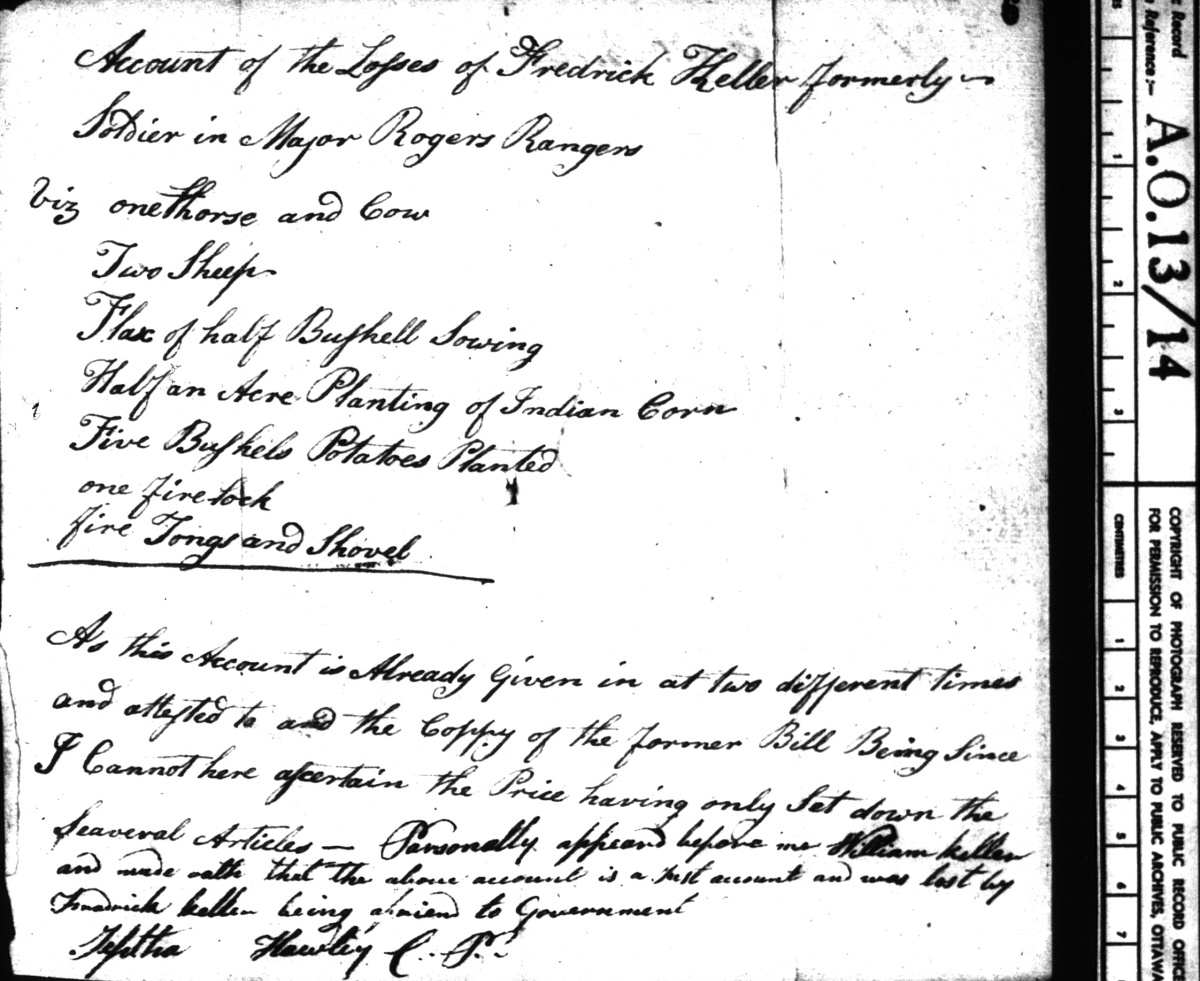 Account of the Losses of Fredrick Keller formerly
Soldier in Major Rogers Rangers
Viz one horse and Cow
Two Sheep
Flax of half Bushell Sowing
Half an Acre Planting of Indian Corn
Five Bushels Potatoes Planted
one firelock
fire Tongs and Shovel
As this Account is Already Given in at two different times
and attested to and the Coppy of the former Bill Being Since
I Cannot here ascertain the Price having only Set down the
Seaveral Articles — Parsonally appeard before me William Keller
and made oath that the above account is a just account and was lost by
Fradrick keller being a friend to Government
Hawley C. P.
Record
Reference:-
A.O.13/14
1
2
3
CENTIMETRES
1
2
3
4
5
6
7
COPYRIGHT OF PHOTOGRAPH RESERVED TO PUBLIC RECORD OFFICE
FOR PERMISSION TO REPRODUCE, APPLY TO PUBLIC ARCHIVES, OTTAWA